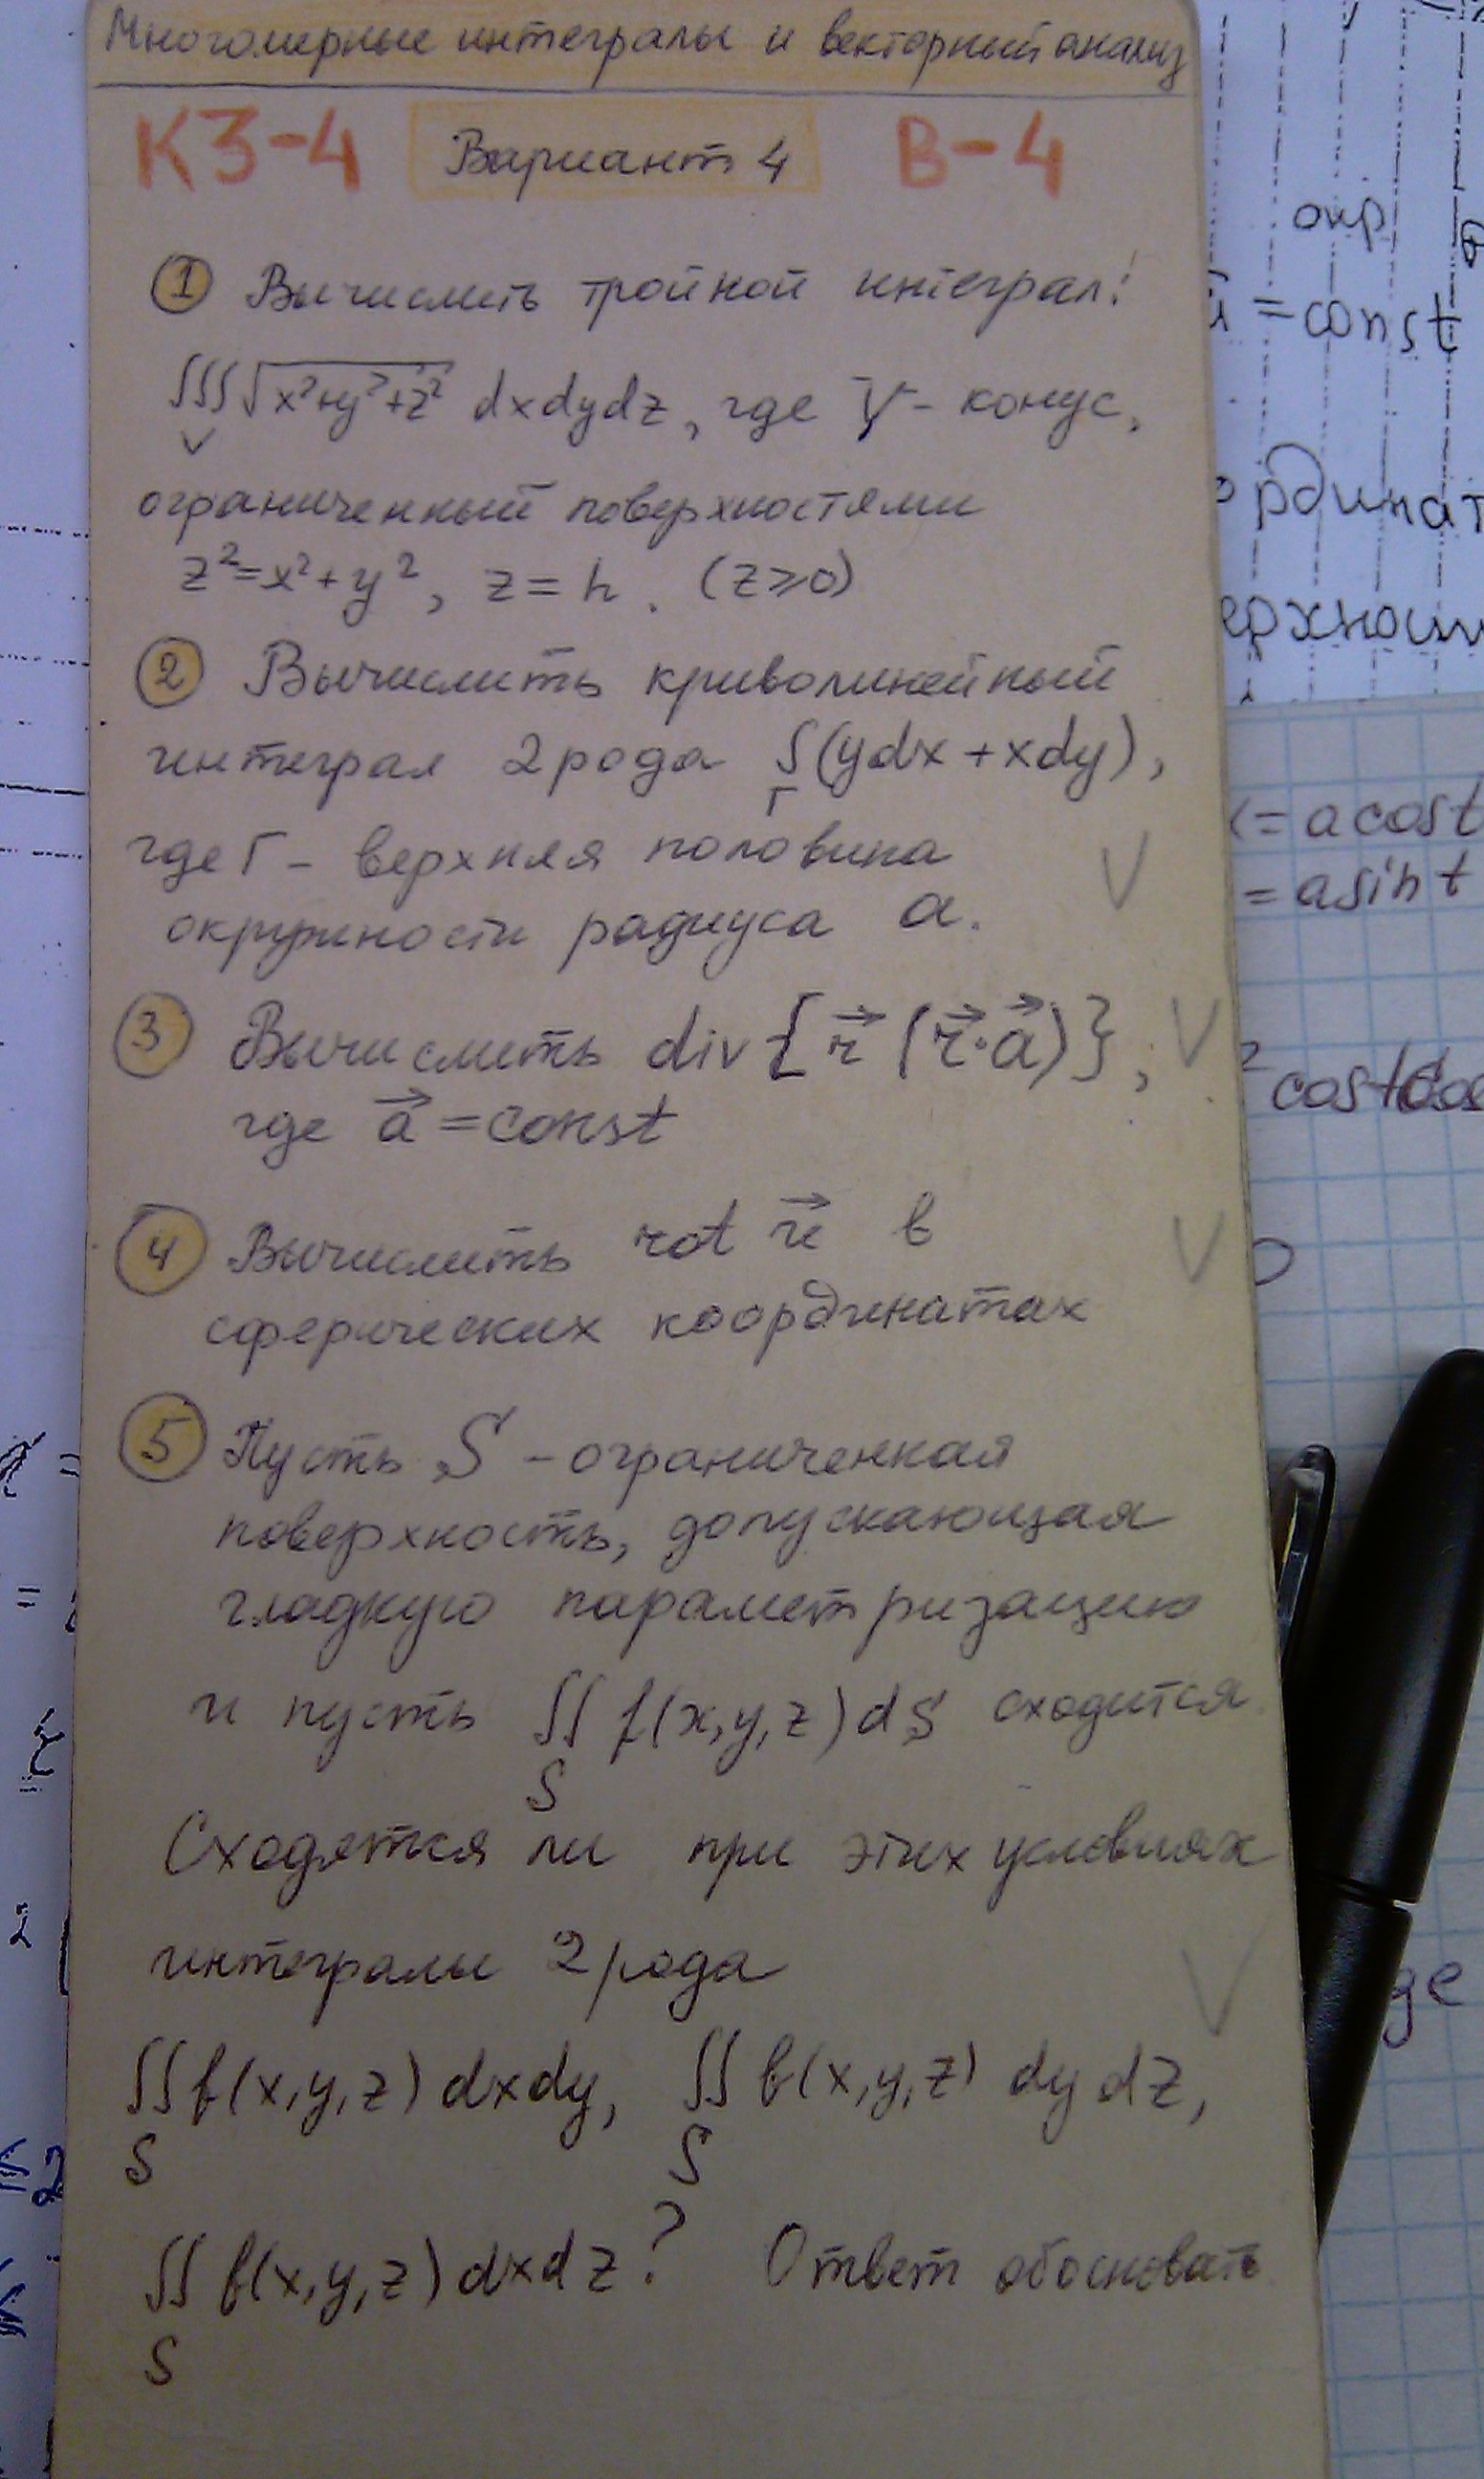 Многомерные интегралы и векторный анализ
КЗ-4 Вариант 4 В-4
① Вычислить тройной интеграл:
∭√x²+y²+z² dxdydz, где V - конус,
V
ограниченный поверхностями
z²=x²+y², z=h. (z⩾0)
② Вычислить криволинейный
интеграл 2 рода ∫(ydx+xdy),
Г
где Г - верхняя половина
окружности радиуса a.
③ Вычислить div{r⃗(r⃗·a⃗)};
где a⃗=const
④ Вычислить rot r⃗ в
сферических координатах
⑤ Пусть S - ограниченная
поверхность, допускающая
гладкую параметризацию
и пусть ∬ f(x,y,z)dS сходится.
S
Сходятся ли при этих условиях
интегралы 2 рода
∬f(x,y,z)dxdy, ∬f(x,y,z) dydz,
S S
∬f(x,y,z)dxdz? Ответ обосновать
S
окр
=const
ординат
ерхност
= a cost
= asint
cost
де